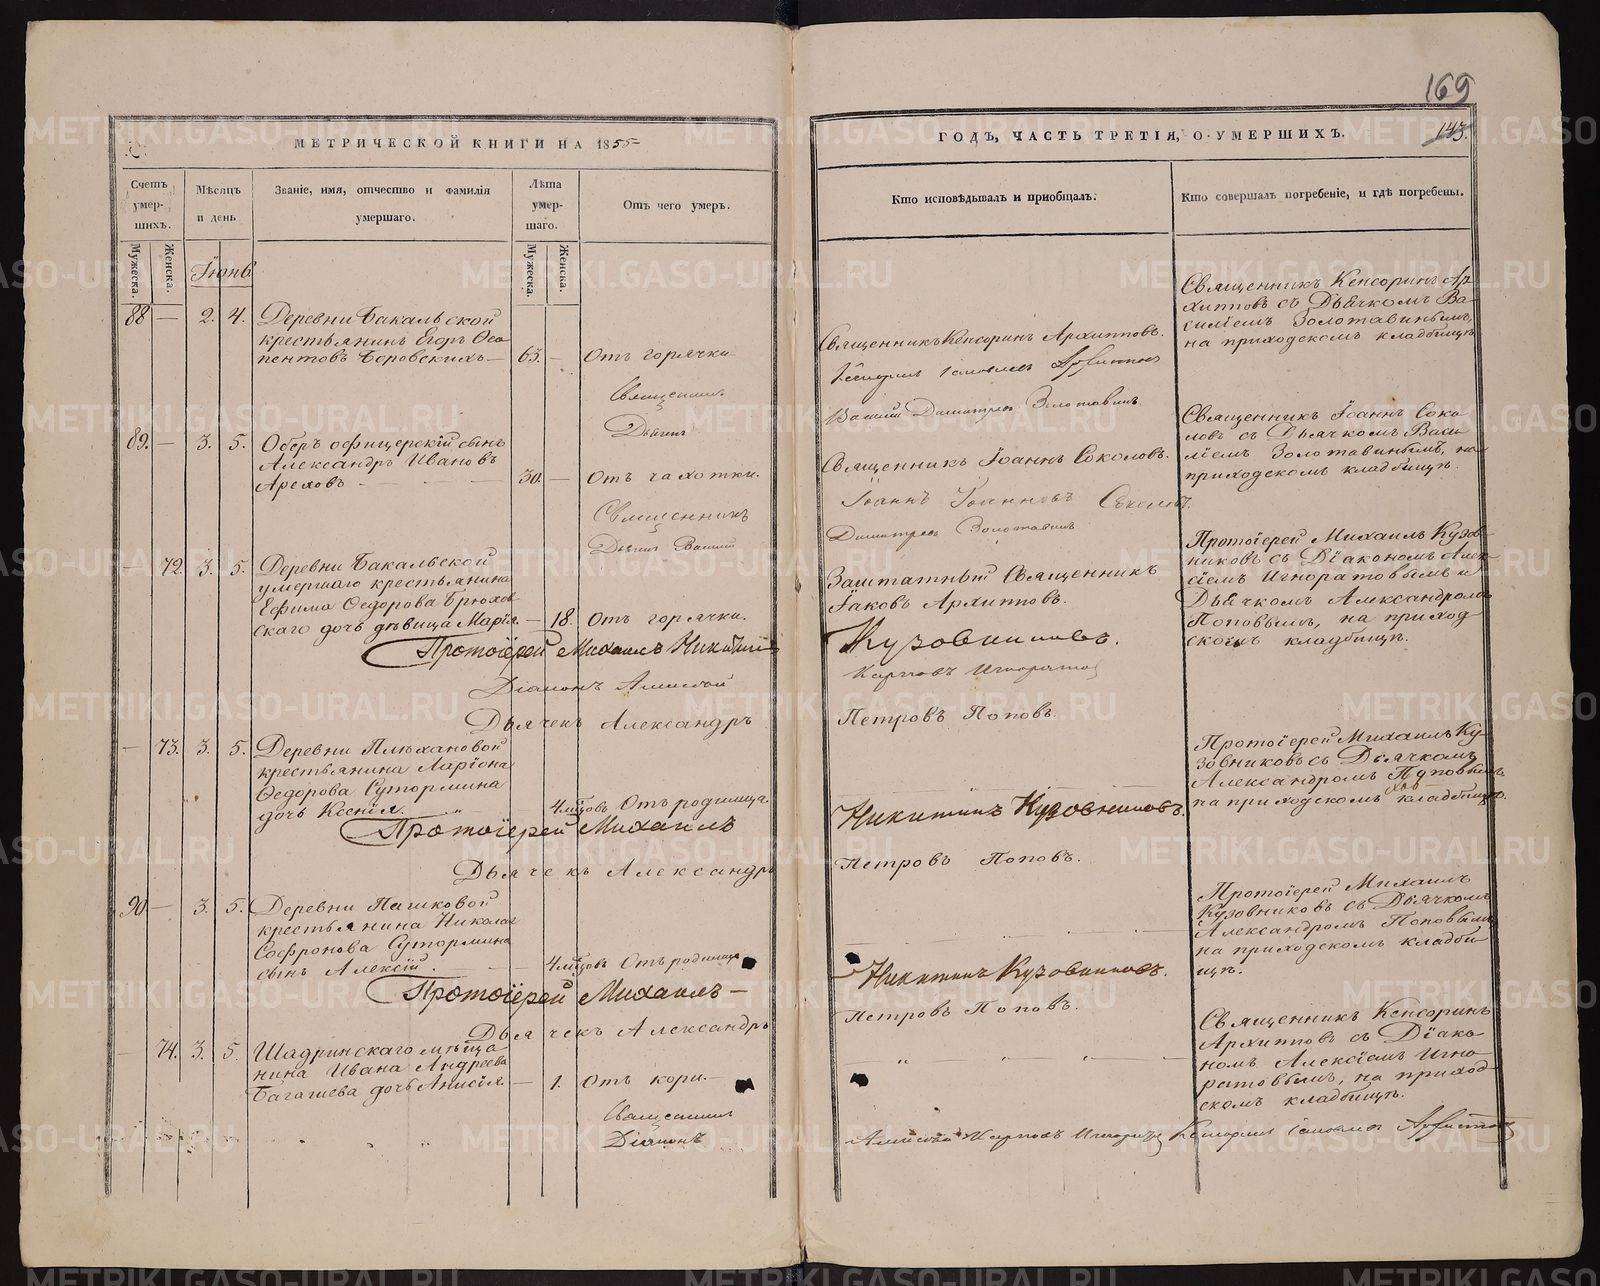 169
МЕТРИЧЕСКОЙ КНИГИ НА 1855
ГОДЪ, ЧАСТЬ ТРЕТІЯ, О УМЕРШИХЪ.
143.
Счетъ умер-шихъ.
Мужеска.
Женска.
Мѣсяцъ и день
Званіе, имя, отчество и фамилія умершаго.
Лѣта умер-шаго.
Мужеска.
Женска.
Отъ чего умеръ.
Кто исповѣдывалъ и пріобщалъ.
Кто совершалъ погребеніе, и гдѣ погребены.
Іюнь
88 — 2. 4. Деревни Бакальской
крестьянинъ Егоръ
Боровскихъ — 63. — Отъ горячки
Священникъ
Дьячекъ
Священникъ Кенсоринъ Архипповъ.
Кенсоринъ Іаковлевъ Архипповъ
Василій Димитріевъ Золотавинъ.
Священникъ Кенсоринъ Ар-
хипповъ съ Дьячкомъ Ва-
силіемъ Золотавинымъ,
на приходскомъ кладбищѣ
89. — 3. 5. Оберъ офицерскій сынъ
Александръ Ивановъ
Ареховъ — 30. — Отъ чахотки.
Священникъ
Дьячекъ Василій
Священникъ Іоаннъ Соколовъ.
Іоаннъ Іоанновъ Соколовъ.
Димитріевъ Золотавинъ
Священникъ Іоаннъ Соко-
ловъ съ Дьячкомъ Васи-
ліемъ Золотавинымъ, на
приходскомъ кладбищѣ.
— 72. 3. 5. Деревни Бакальской
умершаго крестьянина
Ефима Ѳедорова Брюхов-
скаго дочь дѣвица Марія. — 18. Отъ горячки.
Протоіерей Михаилъ Никитинъ
Діаконъ Алексѣй
Дьячекъ Александръ
Заштатный Священникъ
Іаковъ Архипповъ.
Кузовниковъ.
Карповъ Игноратов
Петровъ Поповъ.
Протоіерей Михаилъ Кузов-
никовъ съ Діакономъ Алек-
сіемъ Игноратовымъ и
Дьячкомъ Александромъ
Поповымъ, на приход
скомъ кладбищѣ.
— 73. 3. 5. Деревни Плѣхановой
крестьянина Ларіона
Ѳедорова Сутормина
дочь Ксенія. 4 мѣсцовъ Отъ родимца.
Протоіерей Михаилъ
Дьячекъ Александръ
Никитинъ Кузовниковъ.
Петровъ Поповъ.
Протоіерей Михаилъ Ку-
зовниковъ съ Дьячкомъ
Александромъ Поповымъ
на приходскомъ кладбищѣ.
90. — 3. 5. Деревни Пашковой
крестьянина Николая
Софронова Сутормина
сынъ Алексій. 4 мѣсцовъ Отъ родимца
Протоіерей Михаилъ —
Дьячекъ Александръ
Никитинъ Кузовниковъ.
Петровъ Поповъ.
Протоіерей Михаилъ
Кузовниковъ съ Дьячкомъ
Александромъ Поповымъ
на приходскомъ кладби-
щѣ.
— 74. 3. 5. Шадринскаго мѣща
нина Ивана Андреева
Багашева дочь Анисія — 1. Отъ кори. —
Священникъ
Діаконъ
Алексѣй Карповъ Игноратов Кенсоринъ Іаковлевъ Архипповъ
Священникъ Кенсоринъ
Архипповъ съ Діако-
номъ Алексіемъ Игно-
ратовымъ, на приход-
скомъ кладбищѣ.
METRIKI.GASO-URAL.RU